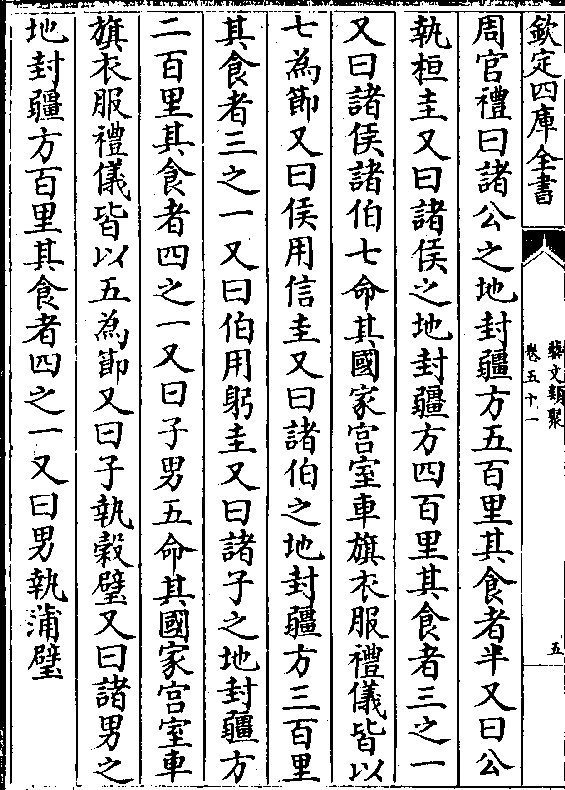 欽定四庫全書
藝文類聚
卷五十一
五
周官禮曰諸公之地封疆方五百里其食者半又曰公
執桓圭又曰諸侯之地封疆方四百里其食者三之一
又曰諸侯諸伯七命其國家宮室車旗衣服禮儀皆以
七為節又曰侯用信圭又曰諸伯之地封疆方三百里
其食者三之一又曰伯用躬圭又曰諸子之地封疆方
二百里其食者四之一又曰子男五命其國家宮室車
旗衣服禮儀皆以五為節又曰子執榖璧又曰諸男之
地封疆方百里其食者四之一又曰男執蒲璧